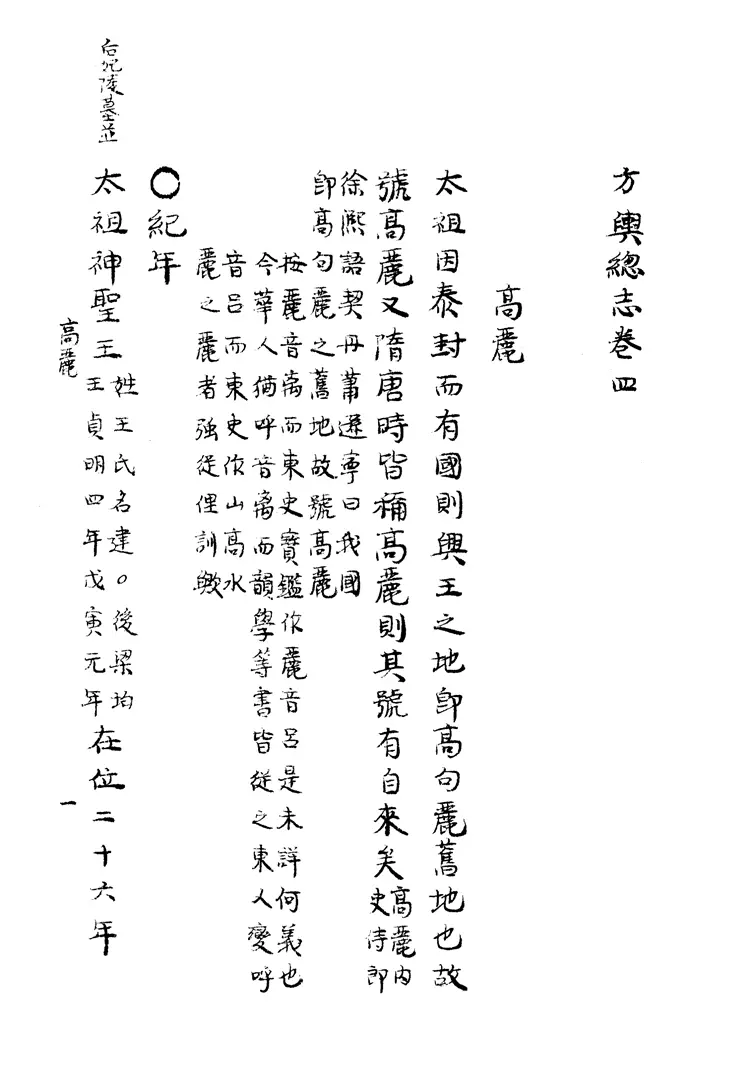 方輿總志卷四
高麗
太祖因泰封而有國則興王之地即高句麗舊地也故
號高麗又隋唐時皆稱高麗則其號有自來矣
高麗內
史侍郎
徐熙語契丹蕭遜寧曰我國
即高句麗之舊地故號高麗
按麗音离而東史寶鑑作麗音呂是未詳何義也
今華人猶呼音离而韻學等書皆從之東人變呼
音呂而東史作山高水
麗之麗者强從俚訓歟
○紀年
后妃陵墓並
太祖神聖王
姓王氏名建○後梁均
王貞明四年戊寅元年
在位二十六年
高麗
一